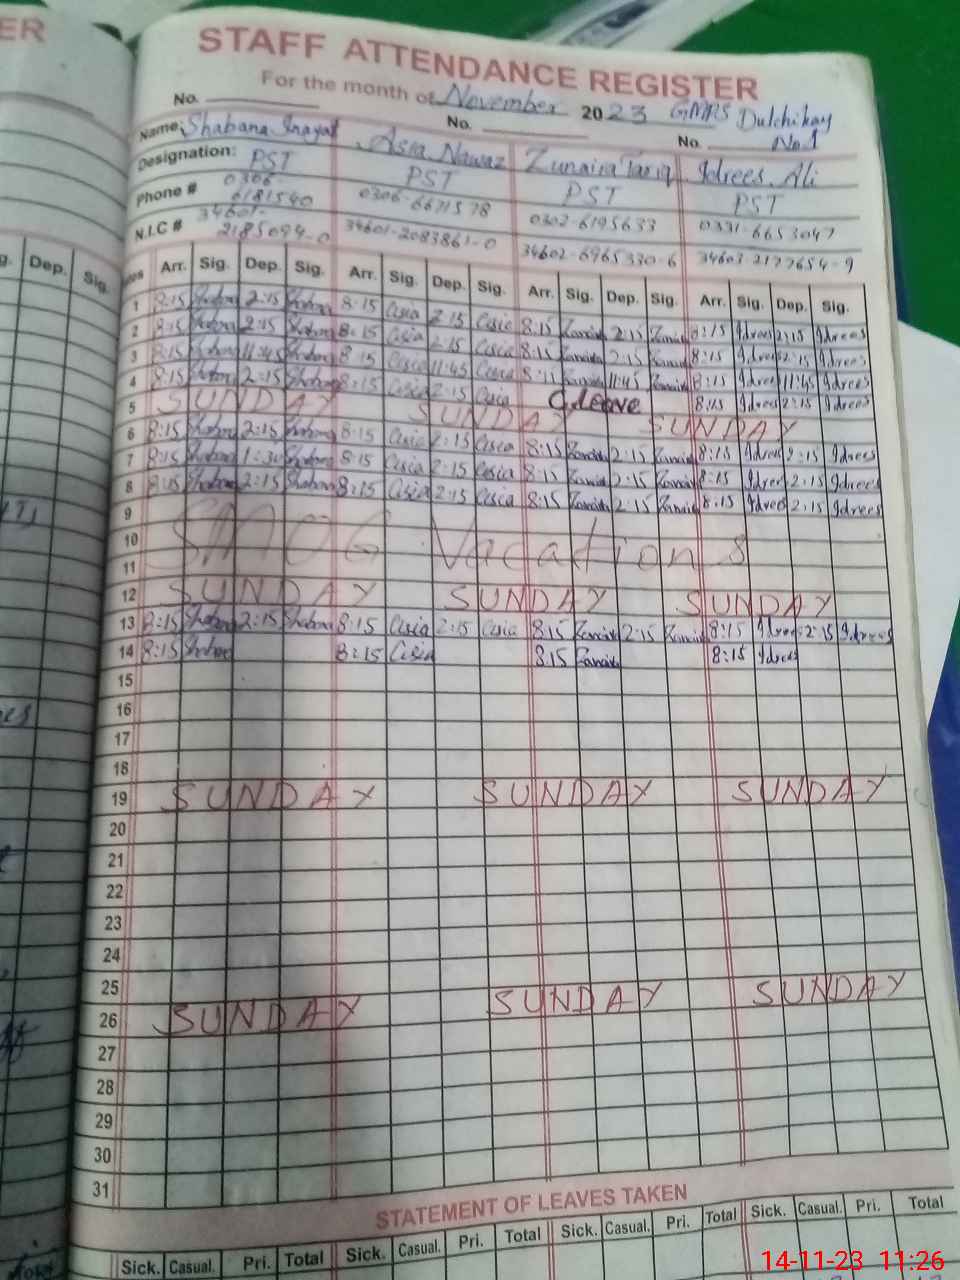 ER
STAFF ATTENDANCE REGISTER
For the month of November 2023 GMPS Dulchikay
No. No. No. No 1
Name: Shabana Inayat Asia Nawaz Zunaira Tariq Idrees Ali
Designation: PST PST PST PST
Phone # 0306-6181540 0306-6671578 0302-6195633 0331-6653047
N.I.C # 34601-2185094-0 34601-2083861-0 34602-6965330-6 34603-2177654-9
g. Dep. Sig. Arr. Sig. Dep. Sig. Arr. Sig. Dep. Sig. Arr. Sig. Dep. Sig. Arr. Sig. Dep. Sig.
1 8:15 Shabana 2:15 Shabana 8:15 Asia 2:15 Asia 8:15 Zunaira 2:15 Zunaira 8:15 Idrees 2:15 Idrees
2 8:15 Shabana 2:15 Shabana 8:15 Asia 2:15 Asia 8:15 Zunaira 2:15 Zunaira 8:15 Idrees 2:15 Idrees
3 8:15 Shabana 11:45 Shabana 8:15 Asia 11:45 Asia 8:15 Zunaira 11:45 Zunaira 8:15 Idrees 11:45 Idrees
4 8:15 Shabana 2:15 Shabana 8:15 Asia 2:15 Asia C.leave 8:15 Idrees 2:15 Idrees
5 SUNDAY SUNDAY SUNDAY
6 8:15 Shabana 2:15 Shabana 8:15 Asia 2:15 Asia 8:15 Zunaira 2:15 Zunaira 8:15 Idrees 2:15 Idrees
7 8:15 Shabana 1:30 Shabana 8:15 Asia 2:15 Asia 8:15 Zunaira 2:15 Zunaira 8:15 Idrees 2:15 Idrees
8 8:15 Shabana 2:15 Shabana 8:15 Asia 2:15 Asia 8:15 Zunaira 2:15 Zunaira 8:15 Idrees 2:15 Idrees
9
10 SMOG Vacations
11
12 SUNDAY SUNDAY SUNDAY
13 8:15 Shabana 2:15 Shabana 8:15 Asia 2:15 Asia 8:15 Zunaira 2:15 Zunaira 8:15 Idrees 2:15 Idrees
14 8:15 Shabana 8:15 Asia 8:15 Zunaira 8:15 Idrees
15
16
17
18
19 SUNDAY SUNDAY SUNDAY
20
21
22
23
24
25
26 SUNDAY SUNDAY SUNDAY
27
28
29
30
31
STATEMENT OF LEAVES TAKEN
Sick. Casual. Pri. Total Sick. Casual. Pri. Total Sick. Casual. Pri. Total Sick. Casual. Pri. Total
14-11-23 11:26